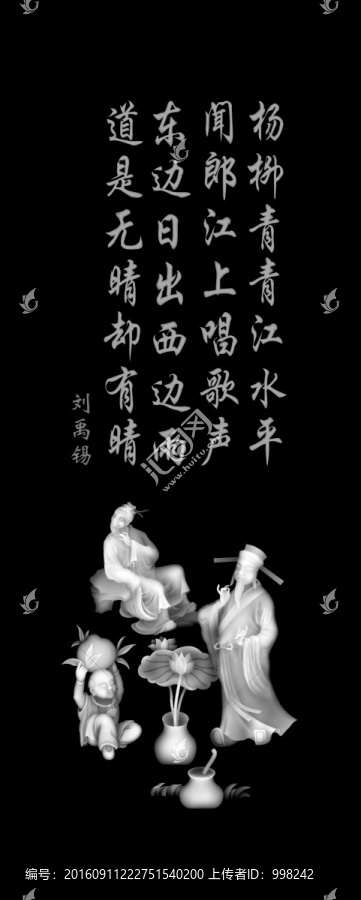 杨柳青青江水平
闻郎江上唱歌声
东边日出西边雨
道是无晴却有晴
刘禹锡
汇图网
www.huitu.com
编号：20160911222751540200 上传者ID：998242